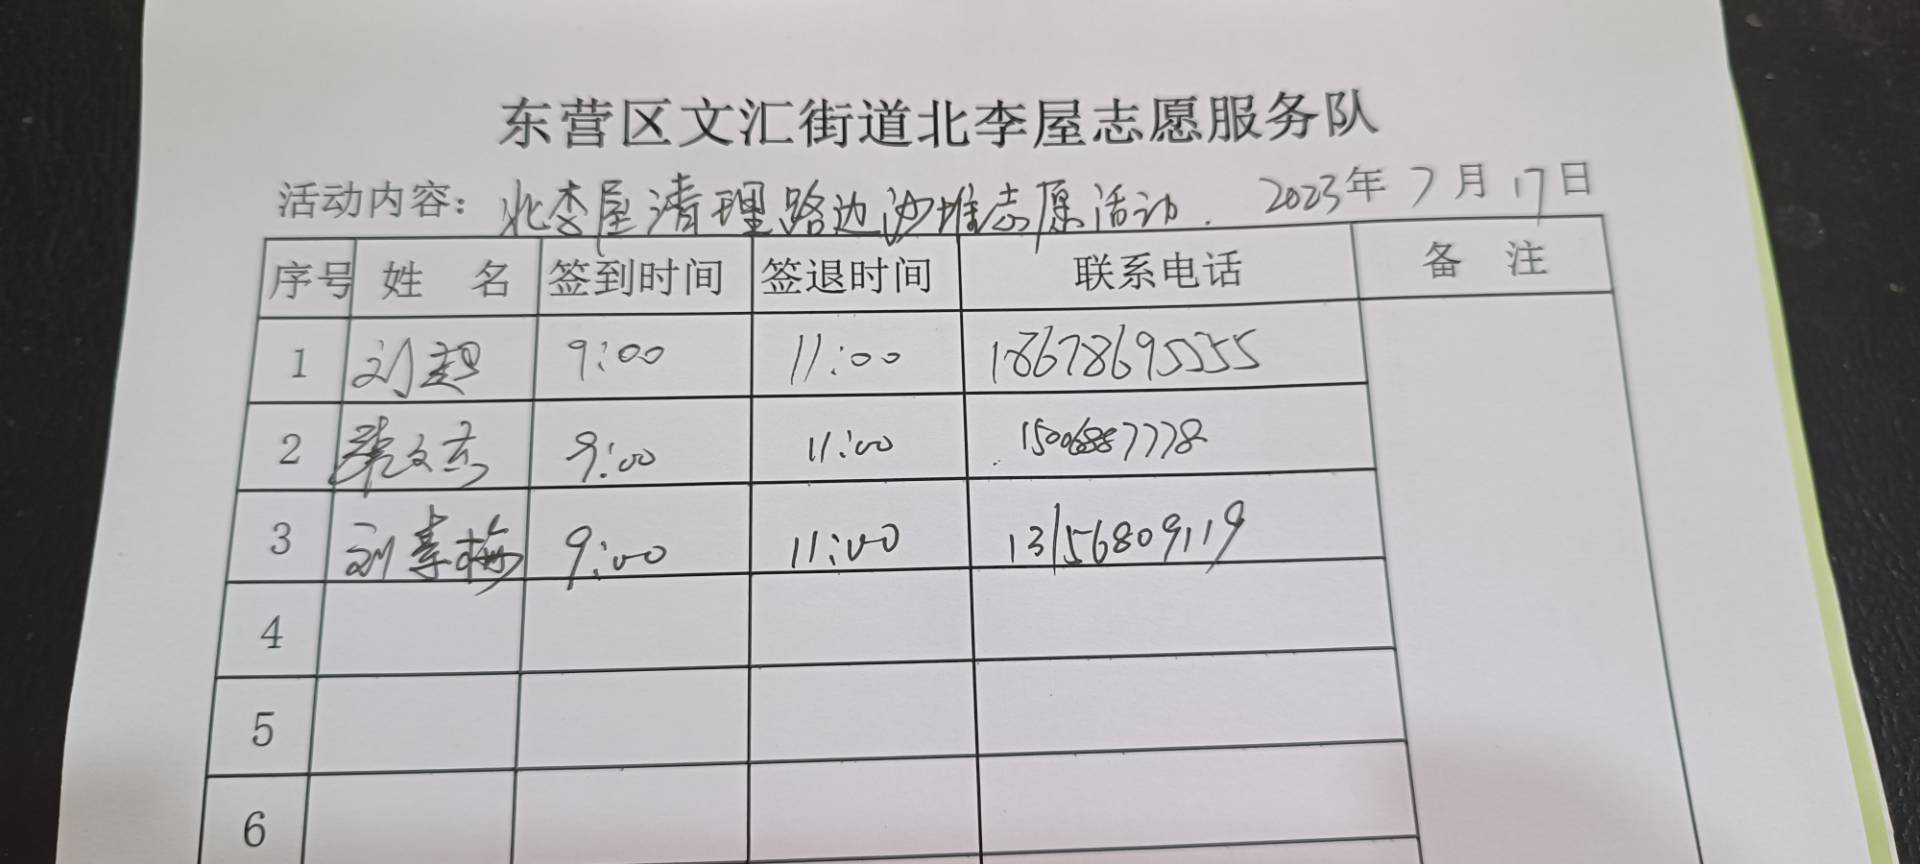 东营区文汇街道北李屋志愿服务队
活动内容：北李屋清理路边沙堆志愿活动. 2023年7月17日
序号 姓名 签到时间 签退时间 联系电话 备注
1 刘超 9:00 11:00 18678695555
2 9:00 11:00 15006887778
3 刘春梅 9:00 11:00 13156809119
4
5
6